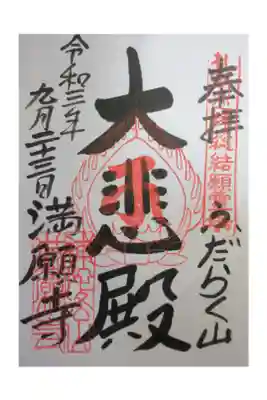 奉拝
ふだらく山
大悲殿
令和三年
九月二十三日
満願寺